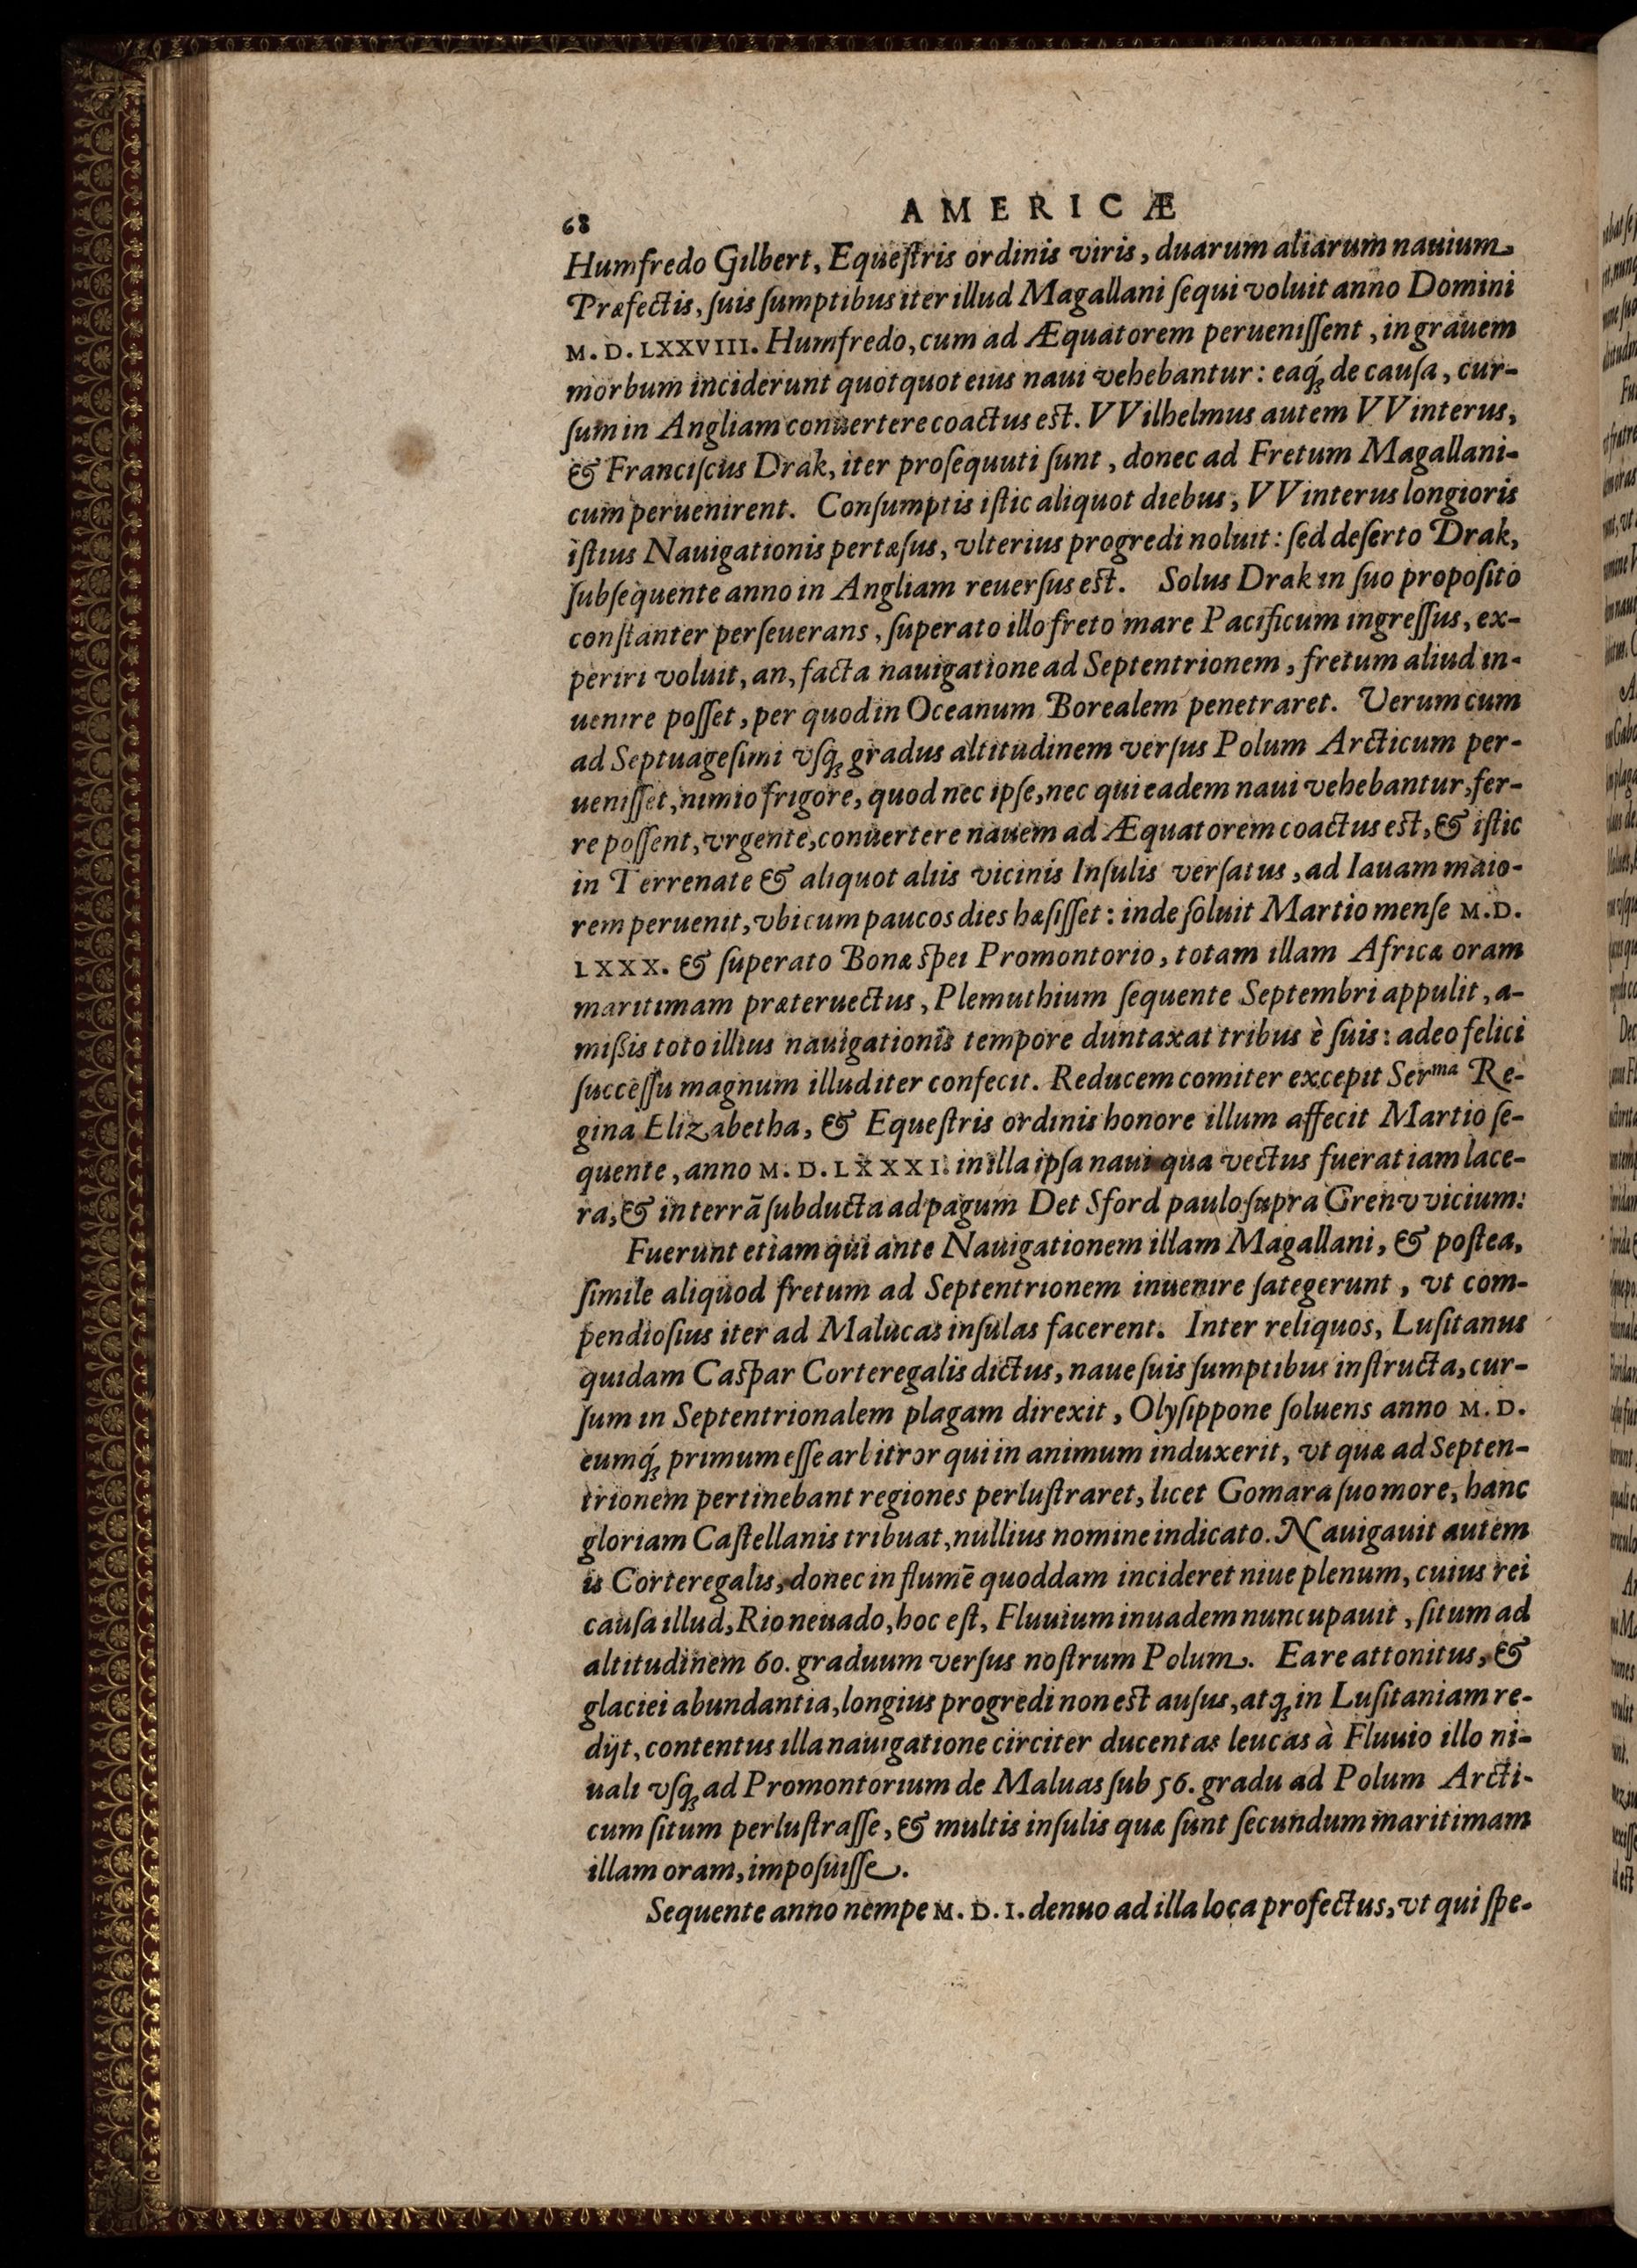 68
AMERICÆ
Humfredo Gilbert, Equeſtris ordinis viris, duarum aliarum nauium
Præfectis, ſuis ſumptibus iter illud Magallani ſequi voluit anno Domini
M. D. LXXVIII. Humfredo, cum ad Æquatorem perueniſſent, in grauem
morbum inciderunt quotquot eius naui vehebantur: eaq́ꝫ de cauſa, cur-
ſum in Angliam conuertere coactus eſt. VVilhelmus autem VVinterus,
& Franciſcus Drak, iter proſequuti ſunt, donec ad Fretum Magallani-
cum peruenirent. Conſumptis iſtic aliquot diebus, VVinterus longioris
iſtius Nauigationis pertæſus, vlterius progredi noluit: ſed deſerto Drak,
ſubſequente anno in Angliam reuerſus eſt. Solus Drak in ſuo propoſito
conſtanter perſeuerans, ſuperato illo freto mare Pacificum ingreſſus, ex-
periri voluit, an, facta nauigatione ad Septentrionem, fretum aliud in-
uenire poſſet, per quod in Oceanum Borealem penetraret. Verum cum
ad Septuageſimi vſqꝫ gradus altitudinem verſus Polum Arcticum per-
ueniſſet, nimio frigore, quod nec ipſe, nec qui eadem naui vehebantur, fer-
re poſſent, vrgente, conuertere nauem ad Æquatorem coactus eſt, & iſtic
in Terrenate & aliquot aliis vicinis Inſulis verſatus, ad Iauam maio-
rem peruenit, vbi cum paucos dies hæſiſſet: inde ſoluit Martio menſe M.D.
LXXX. & ſuperato Bonæ ſpei Promontorio, totam illam Africæ oram
maritimam præteruectus, Plemuthium ſequente Septembri appulit, a-
miſſis toto illius nauigationis tempore duntaxat tribus è ſuis: adeo felici
ſucceſſu magnum illud iter confecit. Reducem comiter excepit Serᵐᵃ Re-
gina Elizabetha, & Equeſtris ordinis honore illum affecit Martio ſe-
quente, anno M. D. LXXXI. in illa ipſa naui qua vectus fuerat iam lace-
ra, & in terrã ſubducta ad pagum Det Sford paulo ſupra Grenvvicium:
Fuerunt etiam qui ante Nauigationem illam Magallani, & poſtea,
ſimile aliquod fretum ad Septentrionem inuenire ſategerunt, vt com-
pendioſius iter ad Malucas inſulas facerent. Inter reliquos, Luſitanus
quidam Caſpar Corteregalis dictus, naue ſuis ſumptibus inſtructa, cur-
ſum in Septentrionalem plagam direxit, Olyſippone ſoluens anno M. D.
eumq́ꝫ primum eſſe arbitror qui in animum induxerit, vt quæ ad Septen-
trionem pertinebant regiones perluſtraret, licet Gomara ſuo more, hanc
gloriam Caſtellanis tribuat, nullius nomine indicato. Nauigauit autem
is Corteregalis, donec in flumẽ quoddam incideret niue plenum, cuius rei
cauſa illud, Rio neuado, hoc eſt, Fluuium inuadem nuncupauit, ſitum ad
altitudinem 60. graduum verſus noſtrum Polum. Ea re attonitus, &
glaciei abundantia, longius progredi non eſt auſus, atqꝫ in Luſitaniam re-
dijt, contentus illa nauigatione circiter ducentas leucas à Fluuio illo ni-
uali vſqꝫ ad Promontorium de Maluas ſub 56. gradu ad Polum Arcti-
cum ſitum perluſtraſſe, & multis inſulis quæ ſunt ſecundum maritimam
illam oram, impoſuiſſe.
Sequente anno nempe M. D. I. denuo ad illa loca profectus, vt qui ſpe-